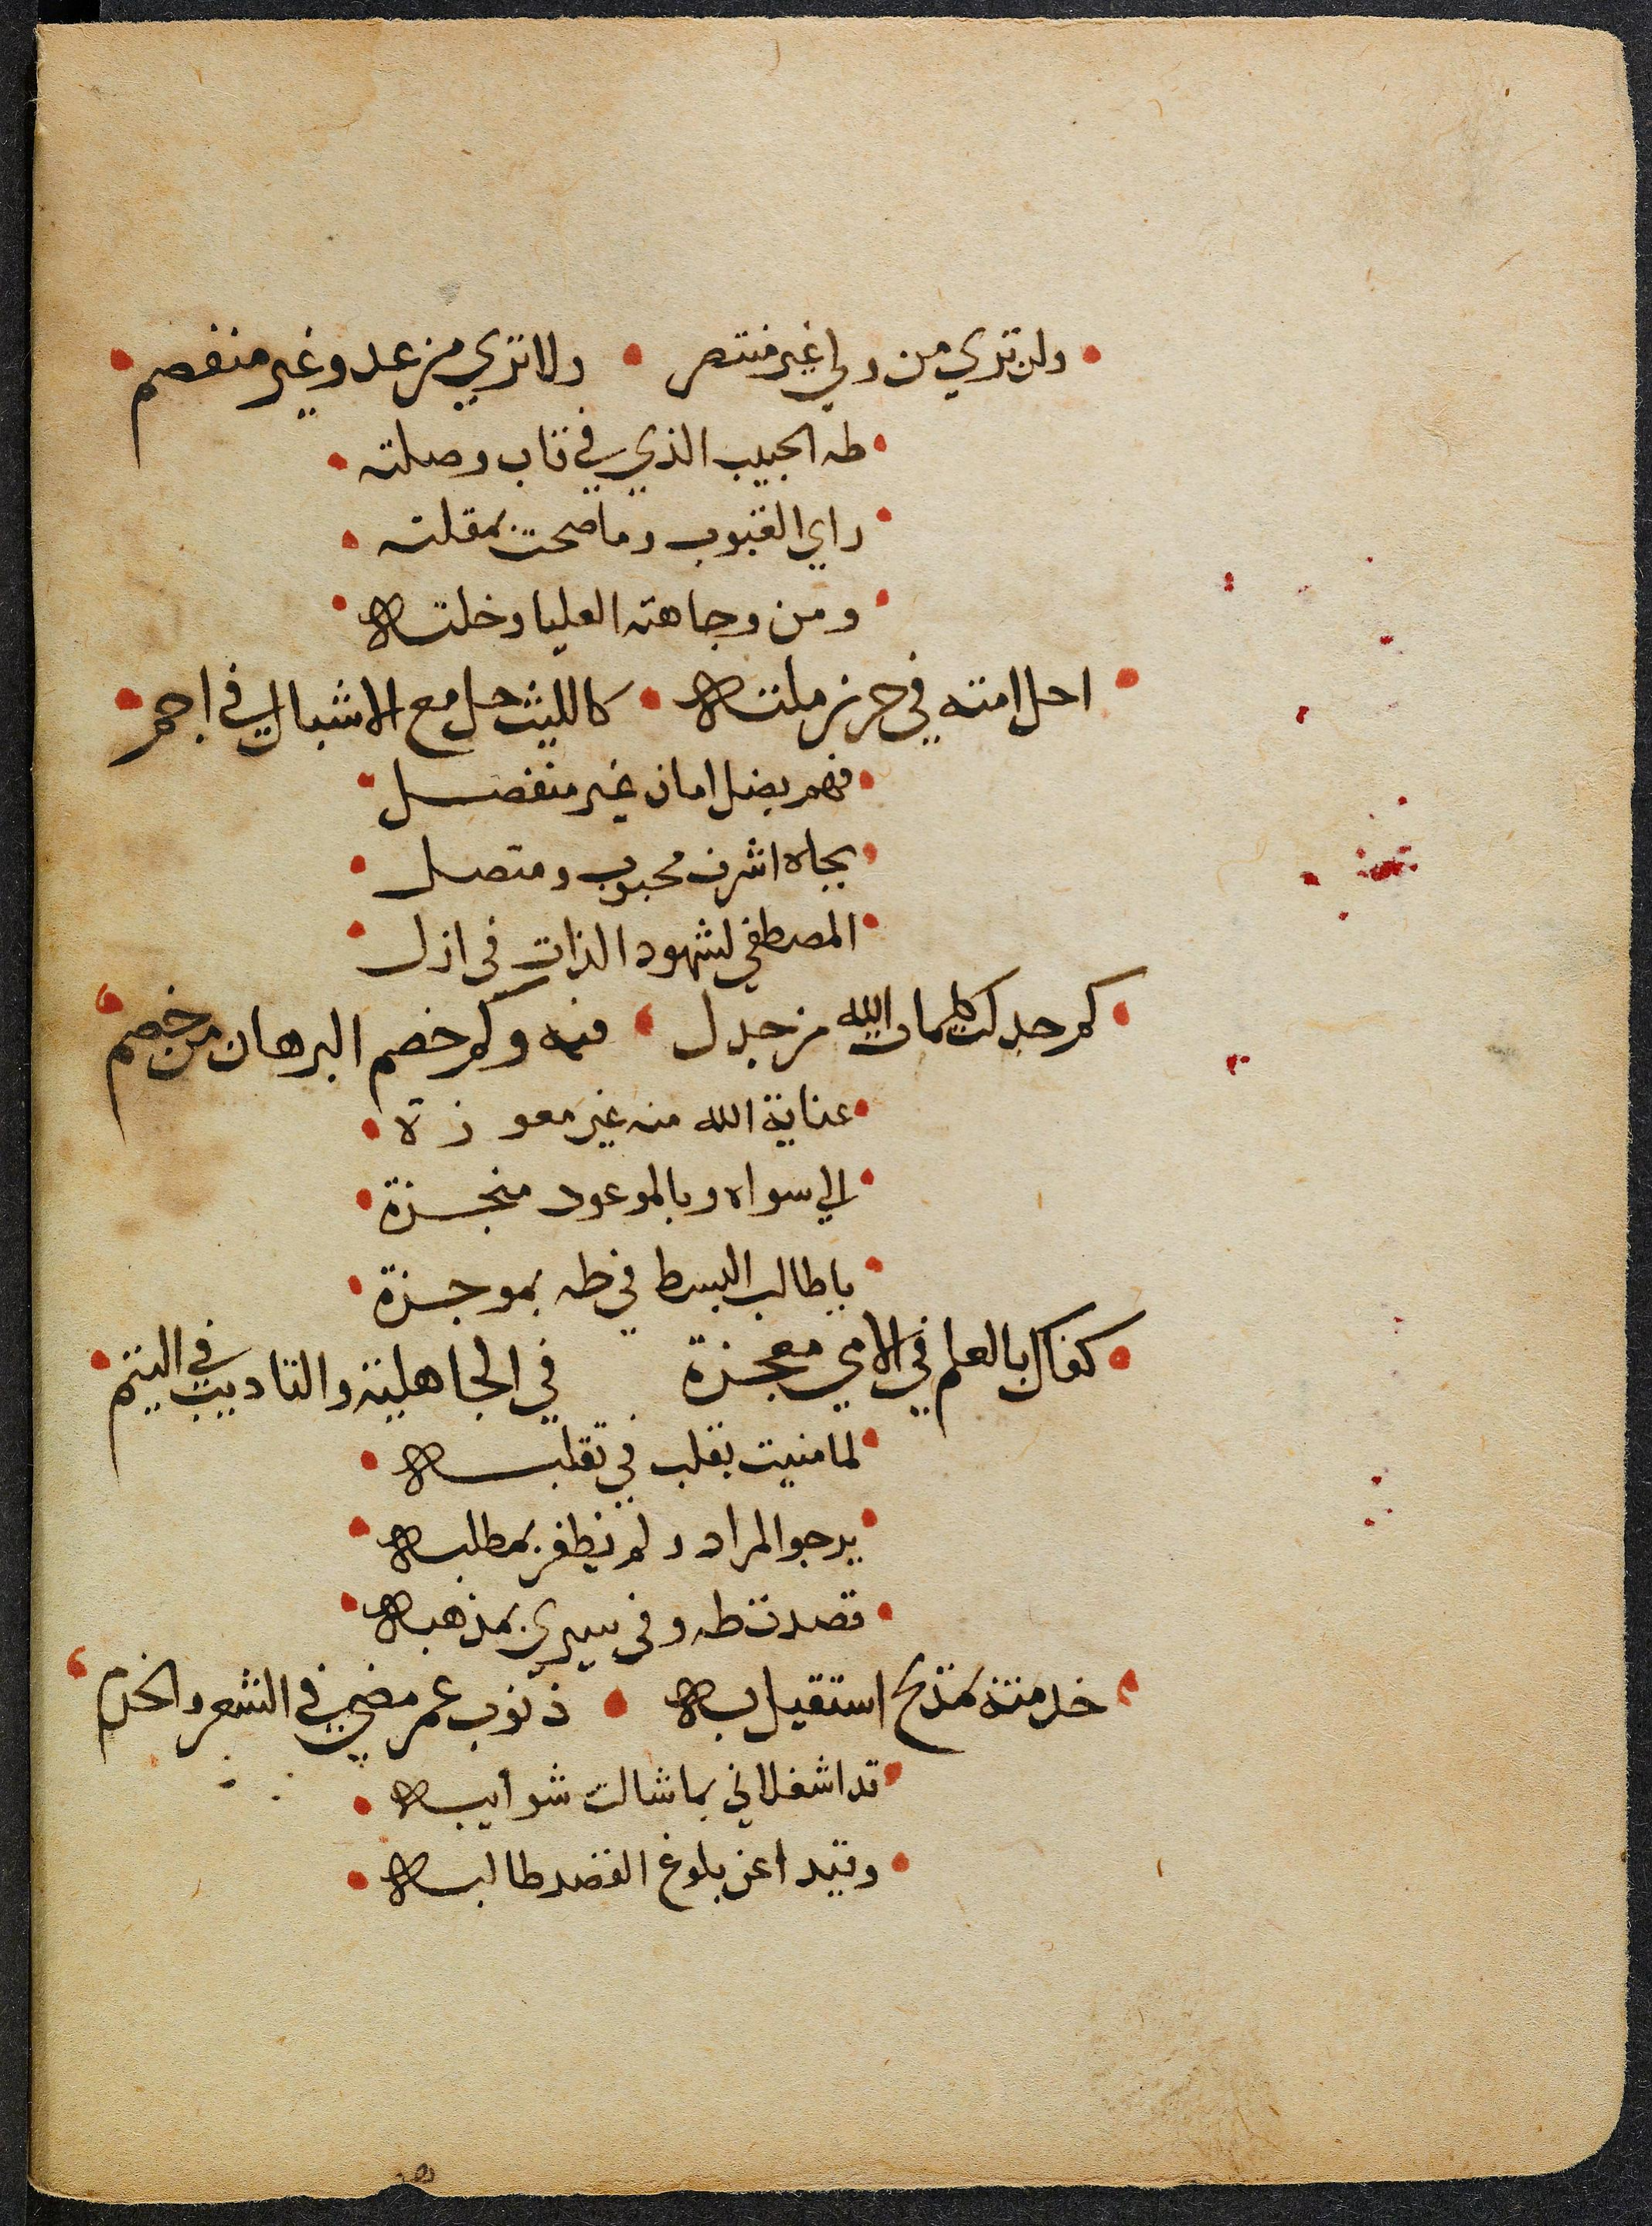 ولن تري من ولي غير منتصر • ولا تري من عدو غير منفصم
طه الحبيب الذي في قاب وصلته
راي الغيوب وما ضحت بمقلته
ومن وجاهته العليا وخلته
احل امته في حرز ملته • كالليث حل مع الاشبال في اجم
فهم بضل امان غير منفصل
بجاه اشرف محبوب ومتصل
المصطفي لشهود الذات في ازل
كم جدلت كلمات الله من جدل • فيه وكم خصم البرهان من خصم
عناية الله منه غير معوزة
الي سواه وبالموعود منجزة
يا طالب البسط في طه بموجزة
كفاك بالعلم في الامي معجزة في الجاهلية والتاديب في اليتم
لما منيت بقلب في تقلبه
يرجوا المراد ولم يظفر بمطلبه
قصدت طه وفي سيري بمذهبه
خدمته بمديح استقيل به • ذنوب عمر مضي في الشعر والخدم
قد اشغلاني بما شالت شوايبه
وقيدا عن بلوغ القصد طالبه